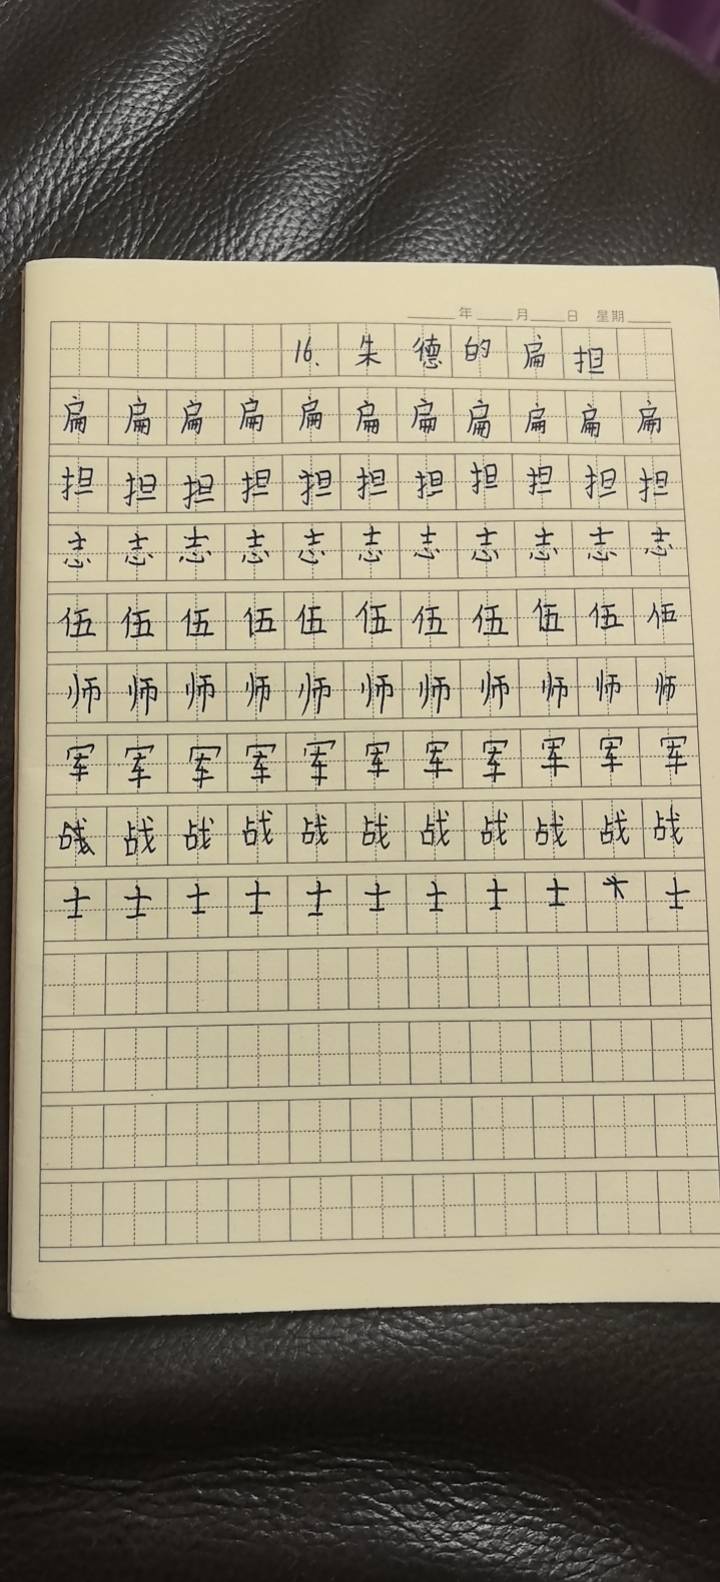 年 月 日 星期
16、朱德的扁担
扁扁扁扁扁扁扁扁扁扁扁
担担担担担担担担担担担
志志志志志志志志志志志
伍伍伍伍伍伍伍伍伍伍伍
师师师师师师师师师师师
军军军军军军军军军军军
战战战战战战战战战战战
士士士士士士士士士士